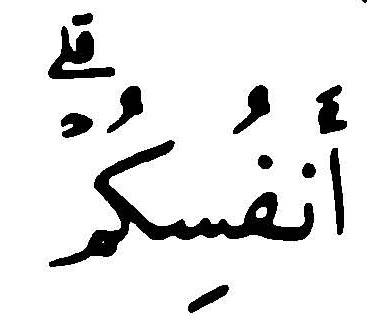 أَنفُسِكُمۡۗ